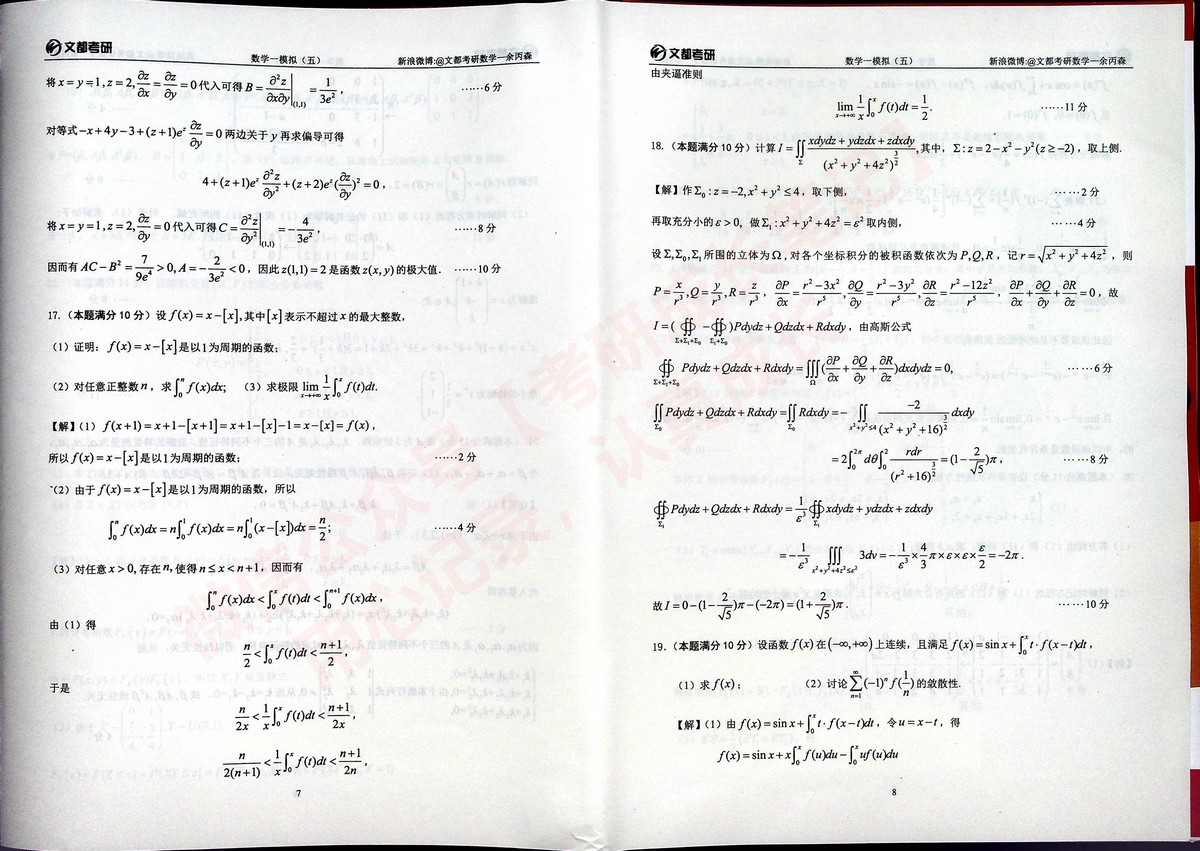 文都考研
数学一模拟（五）
新浪微博:@文都考研数学一余丙森
将 x = y = 1, z = 2, ∂z/∂x = ∂z/∂y = 0 代入可得 B = ∂²z/∂x∂y |(1,1) = 1/3e², ……6分
对等式 −x+4y−3+(z+1)e^z ∂z/∂y = 0 两边关于 y 再求偏导可得
4+(z+1)e^z ∂²z/∂y² +(z+2)e^z(∂z/∂y)² = 0,
将 x = y = 1, z = 2, ∂z/∂y = 0 代入可得 C = ∂²z/∂y² |(1,1) = −4/3e², ……8分
因而有 AC−B² = 7/9e⁴ > 0, A = −2/3e² < 0, 因此 z(1,1) = 2 是函数 z(x,y) 的极大值. ……10分
17.（本题满分 10 分）设 f(x) = x−[x], 其中 [x] 表示不超过 x 的最大整数,
（1）证明: f(x) = x−[x] 是以 1 为周期的函数;
（2）对任意正整数 n, 求 ∫₀ⁿ f(x)dx; （3）求极限 lim_{x→+∞} 1/x ∫₀ˣ f(t)dt.
【解】（1） f(x+1) = x+1−[x+1] = x+1−[x]−1 = x−[x] = f(x),
所以 f(x) = x−[x] 是以 1 为周期的函数; ……2分
（2）由于 f(x) = x−[x] 是以 1 为周期的函数, 所以
∫₀ⁿ f(x)dx = n∫₀¹ f(x)dx = n∫₀¹ (x−[x])dx = n/2; ……4分
（3）对任意 x > 0, 存在 n, 使得 n ≤ x < n+1, 因而有
∫₀ⁿ f(x)dx < ∫₀ˣ f(t)dt < ∫₀ⁿ⁺¹ f(x)dx,
由（1）得
n/2 < ∫₀ˣ f(t)dt < (n+1)/2,
于是
n/2x < 1/x ∫₀ˣ f(t)dt < (n+1)/2x,
n/2(n+1) < 1/x ∫₀ˣ f(t)dt < (n+1)/2n,
7
文都考研
数学一模拟（五）
新浪微博:@文都考研数学一余丙森
由夹逼准则
lim_{x→+∞} 1/x ∫₀ˣ f(t)dt = 1/2. ……11分
18.（本题满分 10 分）计算 I = ∬_Σ (xdydz + ydzdx + zdxdy)/(x²+y²+4z²)^{3/2}, 其中, Σ: z = 2−x²−y² (z ≥ −2), 取上侧.
【解】作 Σ₀: z = −2, x²+y² ≤ 4, 取下侧, ……2分
再取充分小的 ε > 0, 做 Σ₁: x²+y²+4z² = ε² 取内侧, ……4分
设 Σ,Σ₀,Σ₁ 所围的立体为 Ω, 对各个坐标积分的被积函数依次为 P,Q,R, 记 r = √(x²+y²+4z²), 则
P = x/r³, Q = y/r³, R = z/r³, ∂P/∂x = (r²−3x²)/r⁵, ∂Q/∂y = (r²−3y²)/r⁵, ∂R/∂z = (r²−12z²)/r⁵, ∂P/∂x + ∂Q/∂y + ∂R/∂z = 0, 故
I = (∯_{Σ+Σ₁+Σ₀} − ∯_{Σ₁+Σ₀}) Pdydz + Qdzdx + Rdxdy, 由高斯公式
∯_{Σ+Σ₁+Σ₀} Pdydz + Qdzdx + Rdxdy = ∭_Ω (∂P/∂x + ∂Q/∂y + ∂R/∂z)dxdydz = 0, ……6分
∬_{Σ₀} Pdydz + Qdzdx + Rdxdy = ∬_{Σ₀} Rdxdy = − ∬_{x²+y²≤4} −2/(x²+y²+16)^{3/2} dxdy
= 2∫₀^{2π} dθ ∫₀² rdr/(r²+16)^{3/2} = (1−2/√5)π, ……8分
∯_{Σ₁} Pdydz + Qdzdx + Rdxdy = 1/ε³ ∯_{Σ₁} xdydz + ydzdx + zdxdy
= −1/ε³ ∭_{x²+y²+4z²≤ε²} 3dv = −1/ε³ × 4/3 π×ε×ε×ε/2 = −2π.
故 I = 0−(1−2/√5)π−(−2π) = (1+2/√5)π. ……10分
19.（本题满分 10 分）设函数 f(x) 在 (−∞,+∞) 上连续, 且满足 f(x) = sin x + ∫₀ˣ t·f(x−t)dt,
（1）求 f(x); （2）讨论 ∑_{n=1}^∞ (−1)ⁿ f(1/n) 的敛散性.
【解】（1）由 f(x) = sin x + ∫₀ˣ t·f(x−t)dt, 令 u = x−t, 得
f(x) = sin x + x∫₀ˣ f(u)du − ∫₀ˣ uf(u)du
8